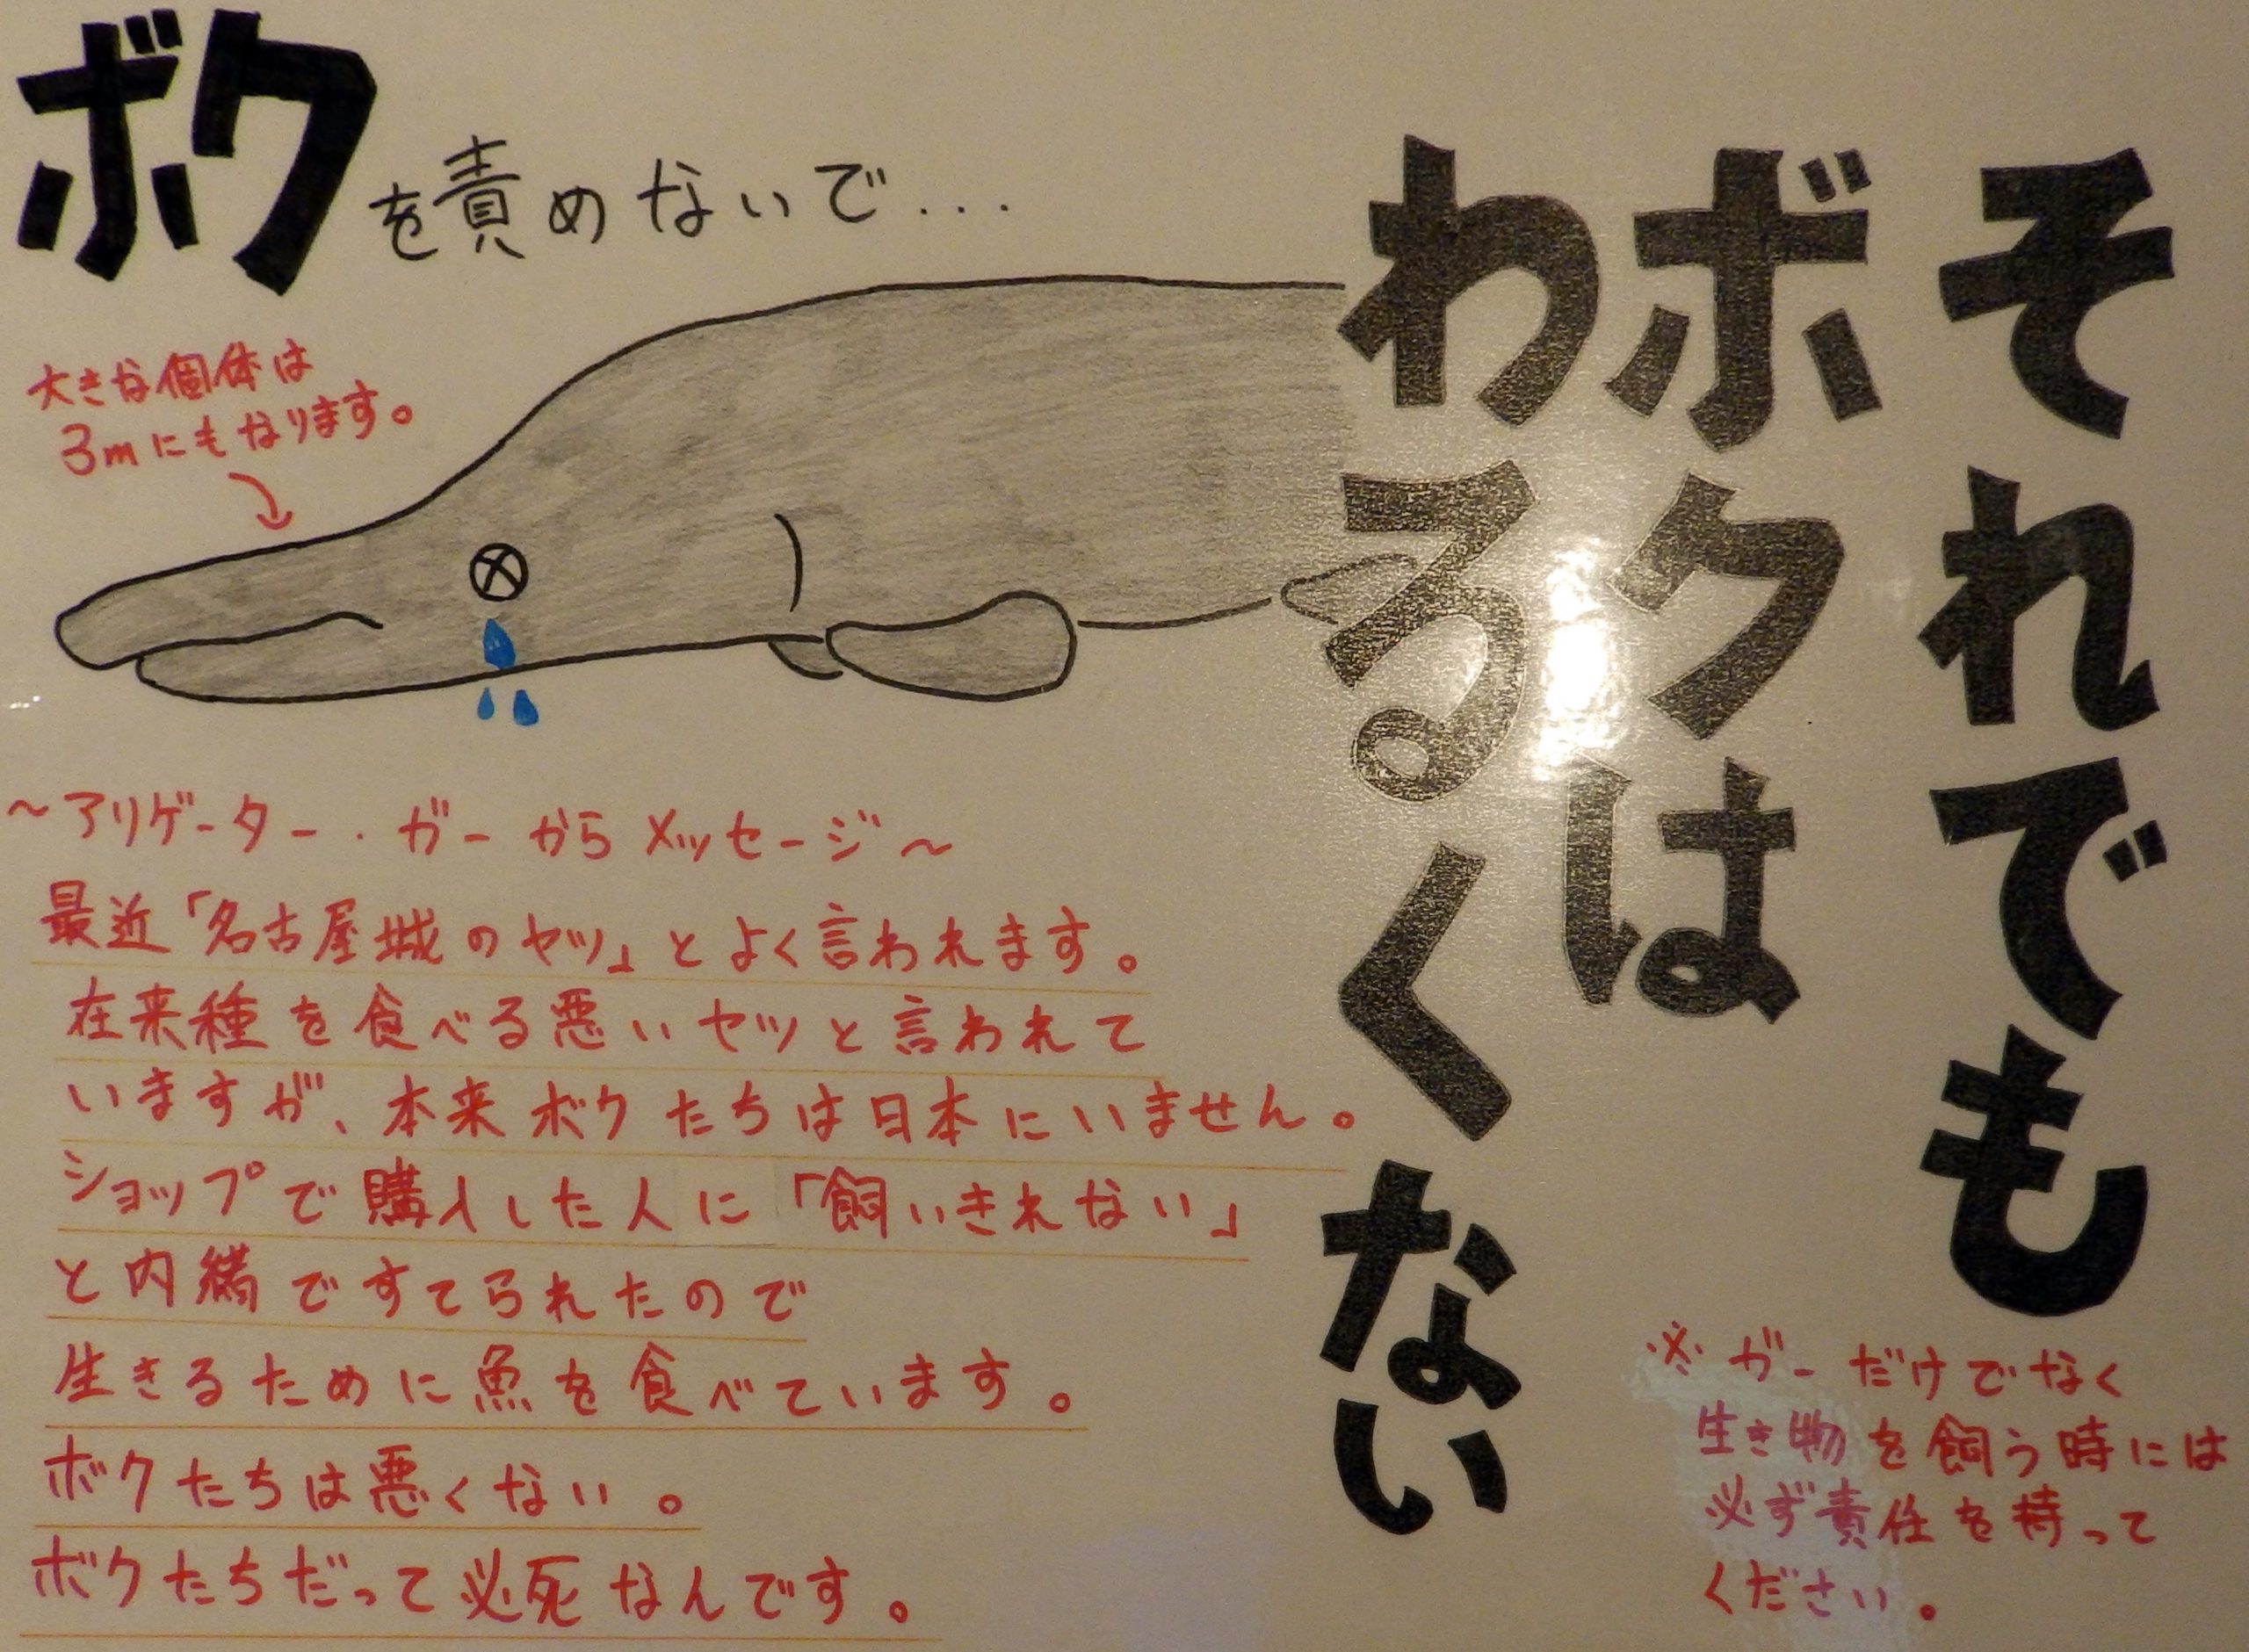 ボクを責めないで...
大きな個体は
3mにもなります。
それでも
ボクは
わるくない
～アリゲーター・ガーからメッセージ～
最近「名古屋城のヤツ」とよく言われます。
在来種を食べる悪いヤツと言われて
いますが、本来ボクたちは日本にいません。
ショップで購入した人に「飼いきれない」
と内緒ですてられたので
生きるために魚を食べています。
ボクたちは悪くない。
ボクたちだって必死なんです。
※ガーだけでなく
生き物を飼う時には
必ず責任を持って
ください。